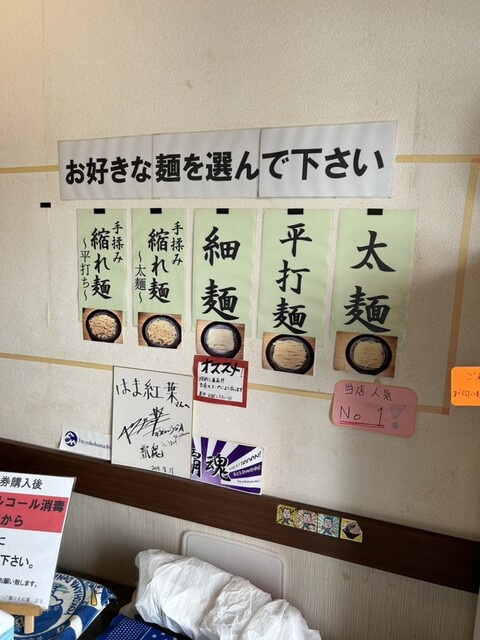 お好きな麺を選んで下さい
手揉み
縮れ麺
～平打ち～
手揉み
縮れ麺
～太麺～
細麺
平打麺
太麺
オススメ!
当店人気
No 1
はま紅葉さんへ
魂
券購入後
ルコール消毒
から
に
下さい。
お願い致します。